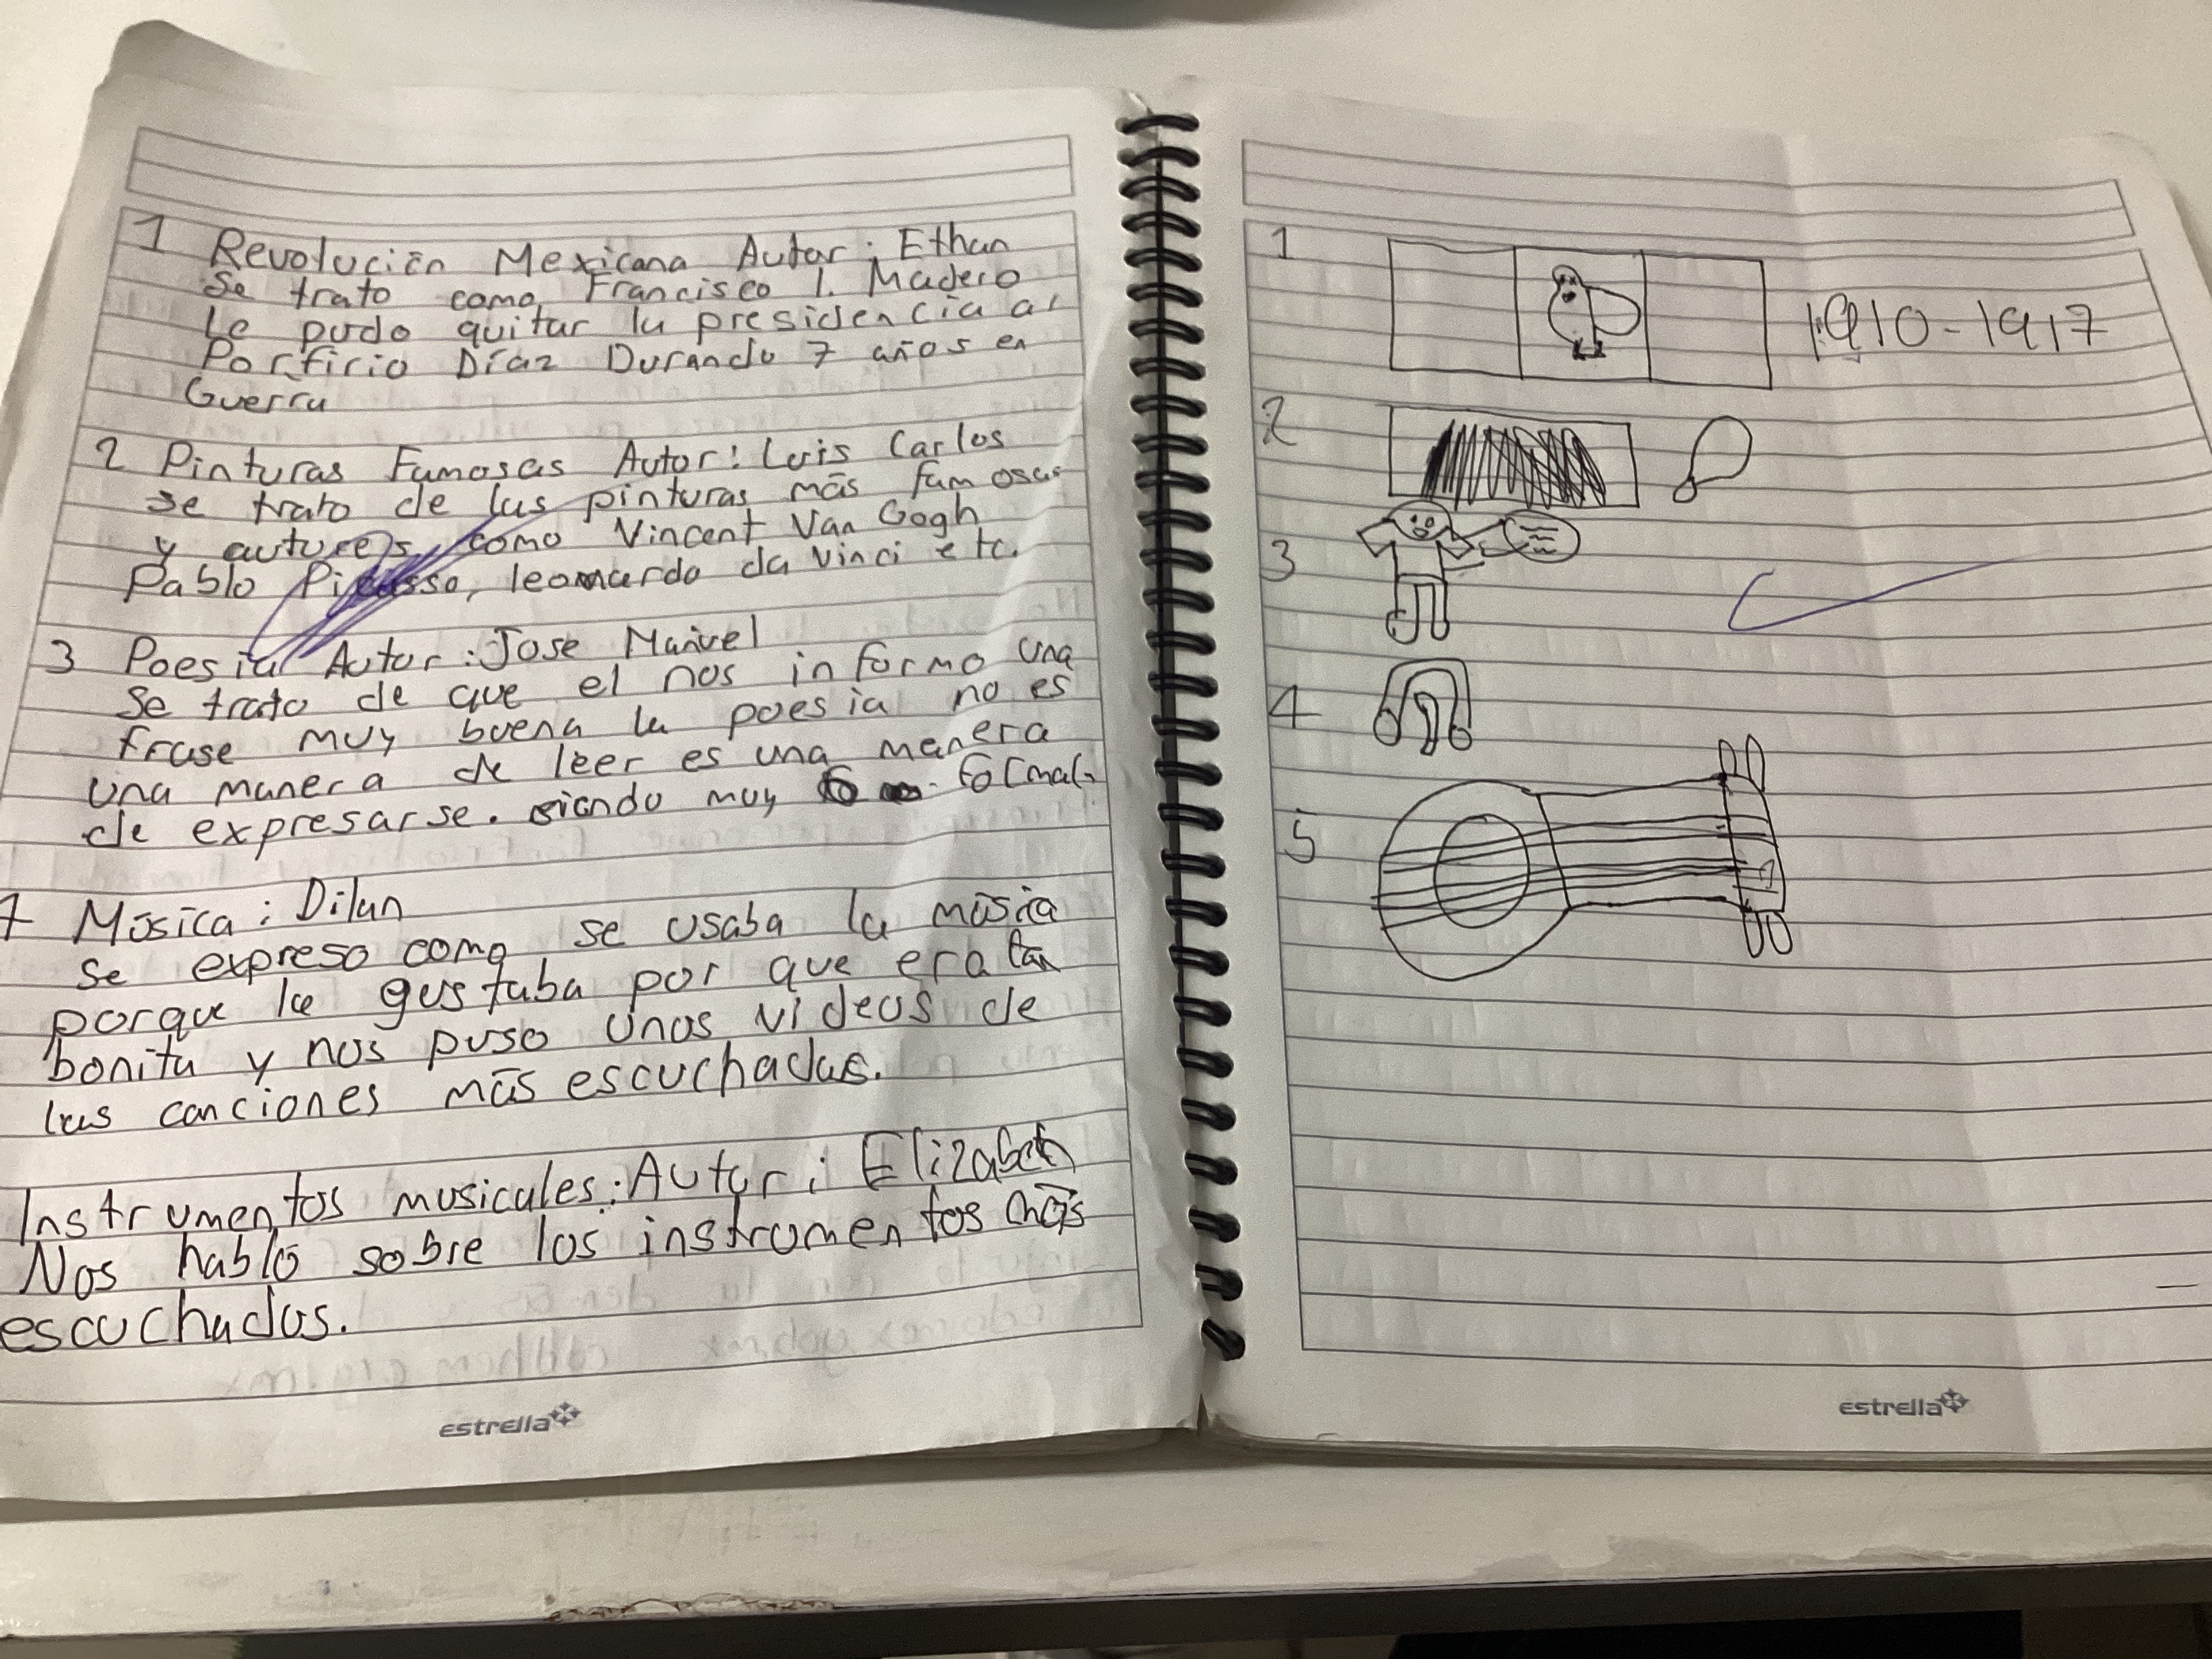 1 Revolución Mexicana Autor: Ethan
Se trato como Francisco I. Madero
Le pudo quitar la presidencia al
Porfirio Díaz Durando 7 años en
Guerra
2 Pinturas Famosas Autor: Luis Carlos
se trato de las pinturas más famosas
y autores como Vincent Van Gogh
Pablo Picasso, leomardo da Vinci etc.
3 Poesia Autor: Jose Manuel
Se trato de que el nos informo una
frase muy buena la poesia no es
una manera de leer es una manera
de expresarse. siendo muy formal.
4 Música: Dilan
Se expreso como se usaba la música
porque le gustaba por que era tan
bonita y nos puso unos videos de
las canciones más escuchadas.
Instrumentos musicales: Autor: Elizabeth
Nos habló sobre los instrumentos más
escuchados.
estrella
1
1910-1917
2
3
4
5
estrella